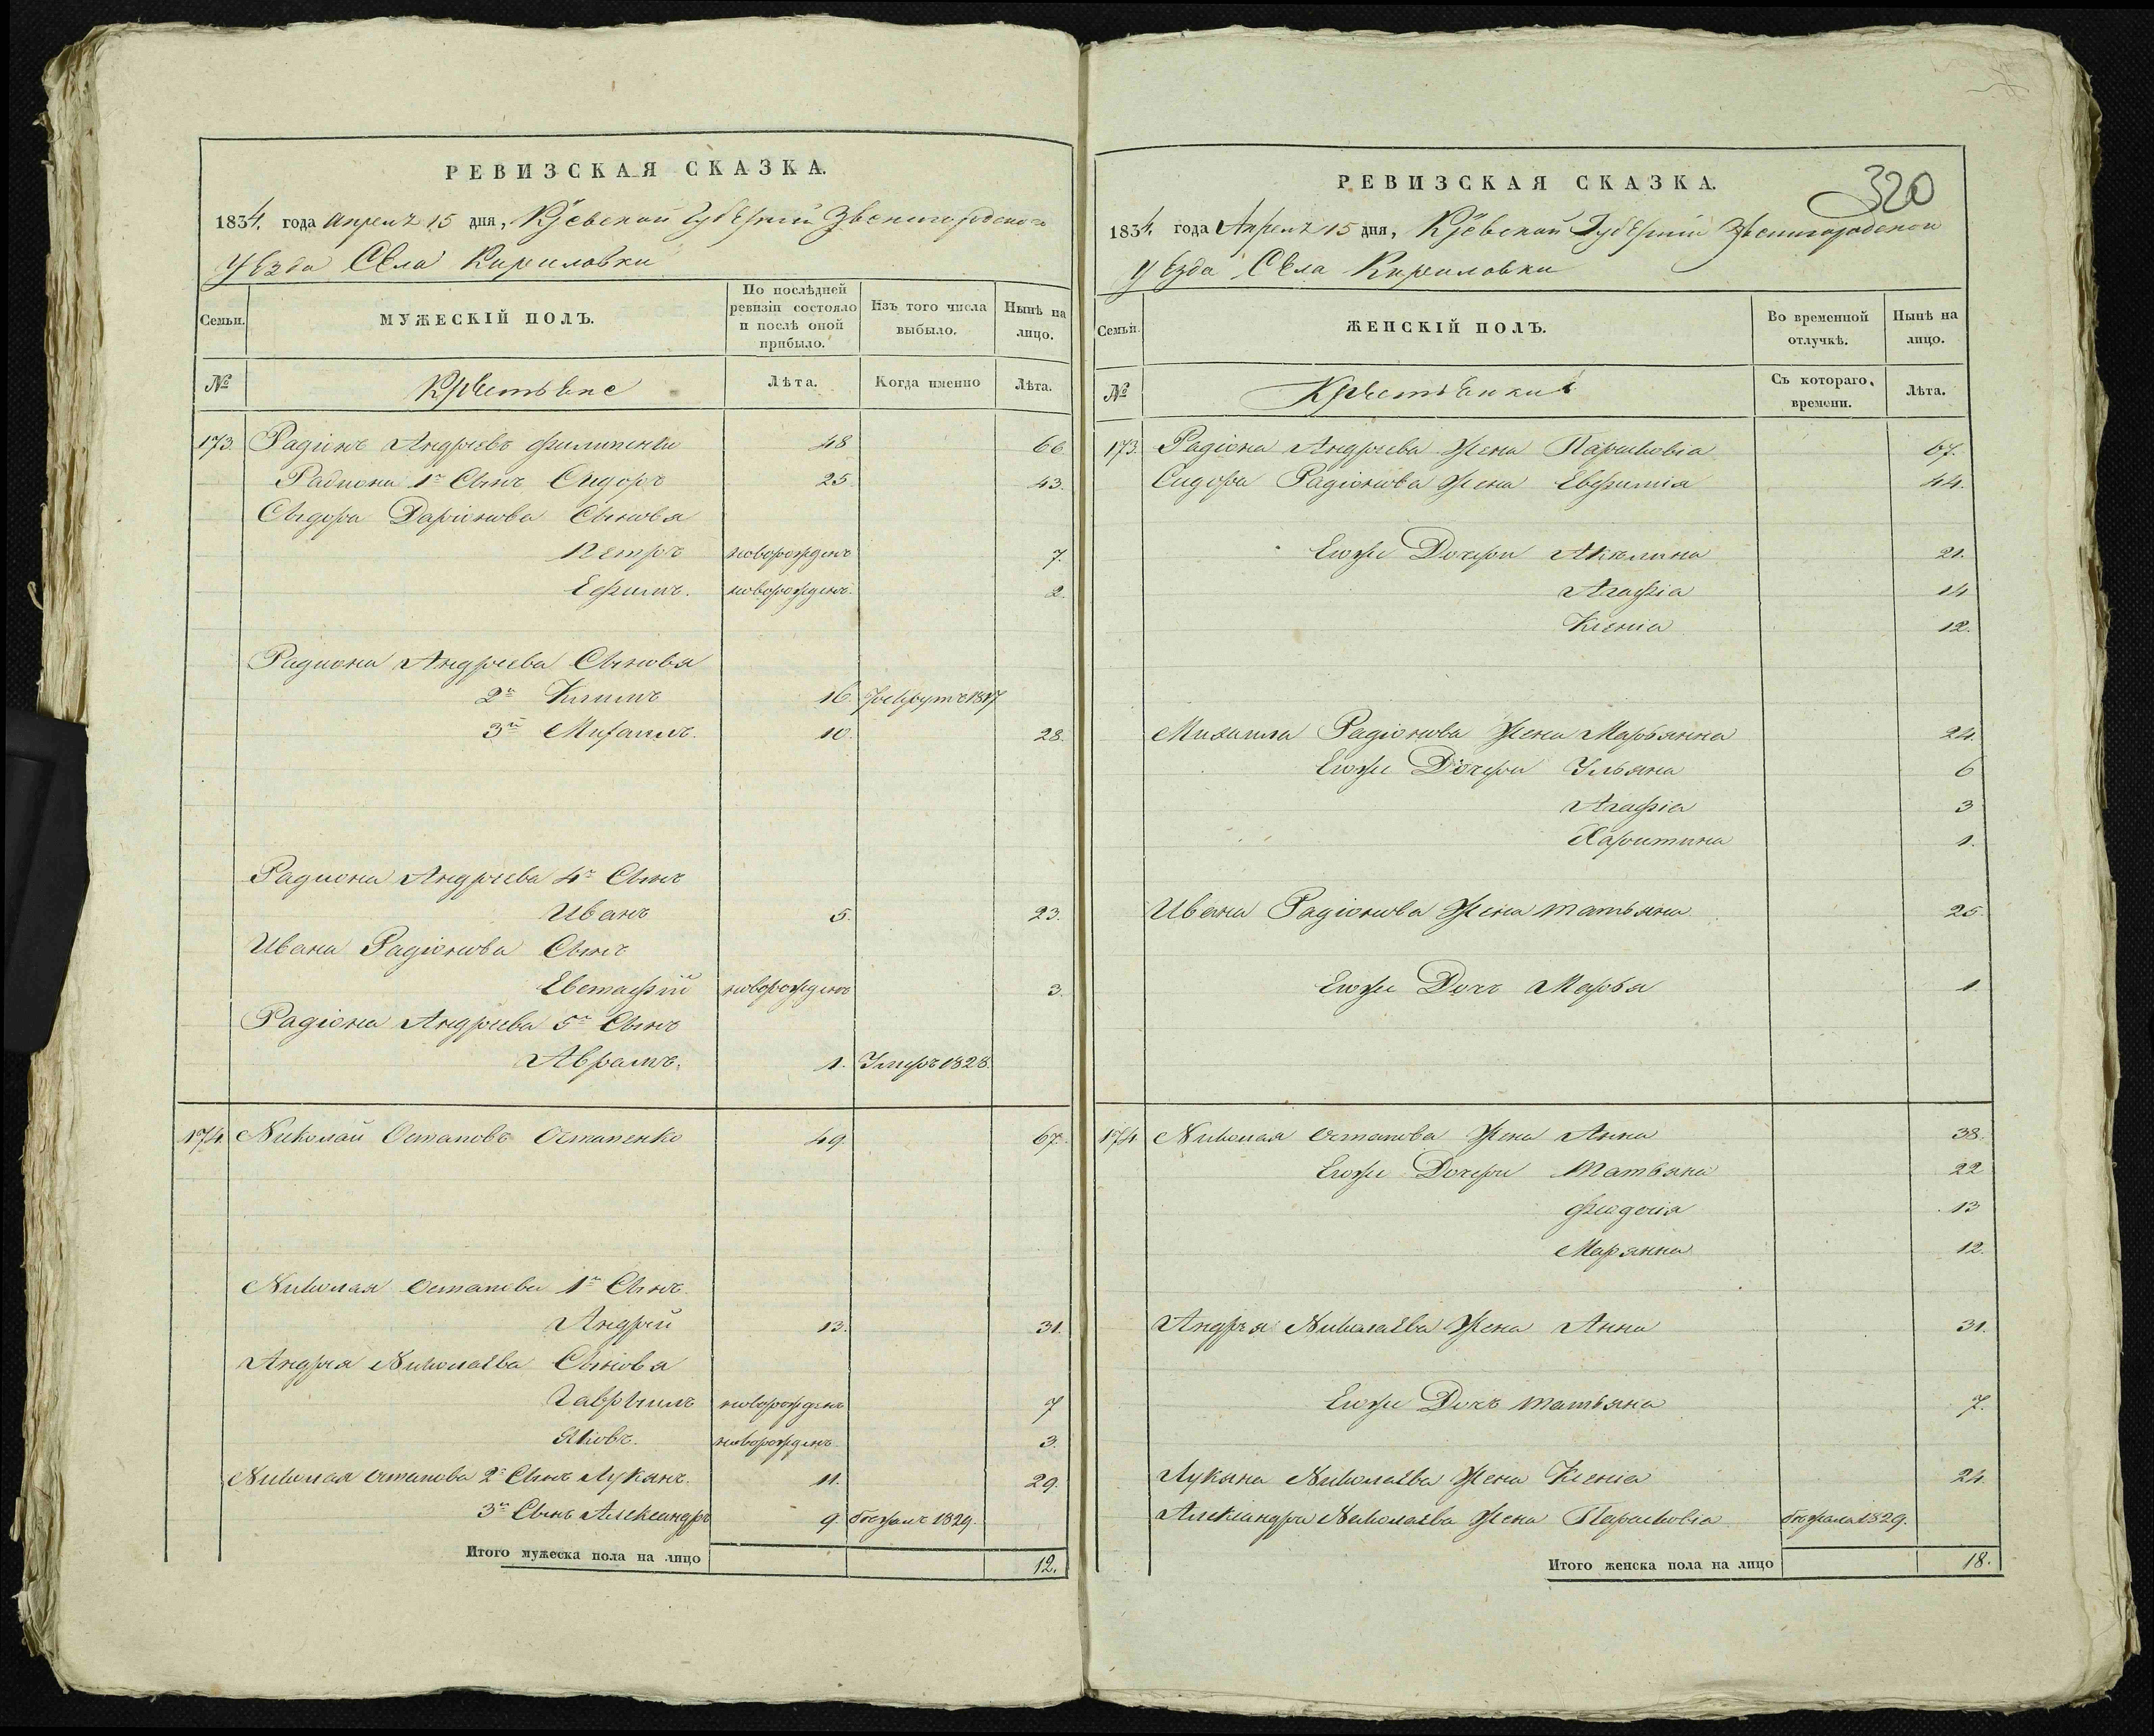 РЕВИЗСКАЯ СКАЗКА.
1834. года Апреля 15 дня, Кіевской Губерніи Звенигородского
Уѣзда Села Кириловки
Семьи. МУЖЕСКІЙ ПОЛЪ. По послѣдней ревизіи состояло и послѣ оной прибыло. Изъ того числа выбыло. Нынѣ на лицо.
№ Крестьяне Лѣта. Когда именно Лѣта.
173. Радіонъ Андреевъ Филипенко 48 66
Радиона 1й Сынъ Сидоръ 25 43.
Сыдора Даріонова Сыновья
Петръ новорожденъ 7.
Ефимъ. новорожденъ. 2.
Радиона Андреева Сыновья
2й Климъ 16 рекрутъ 1817
3й Михаилъ. 10. 28.
Радиона Андреева 4й Сынъ
Иванъ 5. 23.
Ивана Радіонова Сынъ
Евстафій новорожденъ 3.
Радіона Андреева 5й Сынъ
Аврамъ. 1. Умеръ 1828.
174. Николай Остаповъ Остапенко 49 67.
Николая Остапова 1й Сынъ
Андрей 13. 31.
Андрея Николаева Сыновья
Гаврыилъ новорожденъ 7
Яковъ. новорожденъ 3.
Николая Остапова 2й Сынъ Лукянъ. 11. 29.
3й Сынъ Александръ 9. бежалъ 1829.
Итого мужеска пола на лицо 12.
320
РЕВИЗСКАЯ СКАЗКА.
1834. года Апреля 15 дня, Кіевской Губерніи Звенигородской
Уѣзда Села Кириловки
Семьи. ЖЕНСКІЙ ПОЛЪ. Во временной отлучкѣ. Нынѣ на лицо.
№ Крестьянки Съ котораго, времени. Лѣта.
173. Радіона Андреева Жена Парасковіа 67.
Сидора Радіонова Жена Евфимія 44.
Егоже Дочери Акълина 21.
Агафіа 14
Ксеніа 12.
Михаила Радіонова Жена Марьянна 24.
Егоже Дочери Ульяна 6
Агафіа 3
Харитина 1.
Ивана Радіонова Жена Татьяна 25.
Егоже Дочъ Марья 1
174 Николая Остапова Жена Анна 38.
Егоже Дочери Татьяна 22
Феодосія 13
Марянна 12.
Андрея Николаева Жена Анна 31.
Егоже Дочъ Татьяна 7.
Лукяна Николаева Жена Ксеніа 24.
Александра Николаева Жена Парасковіа бежала 1829.
Итого женска пола на лицо 18.